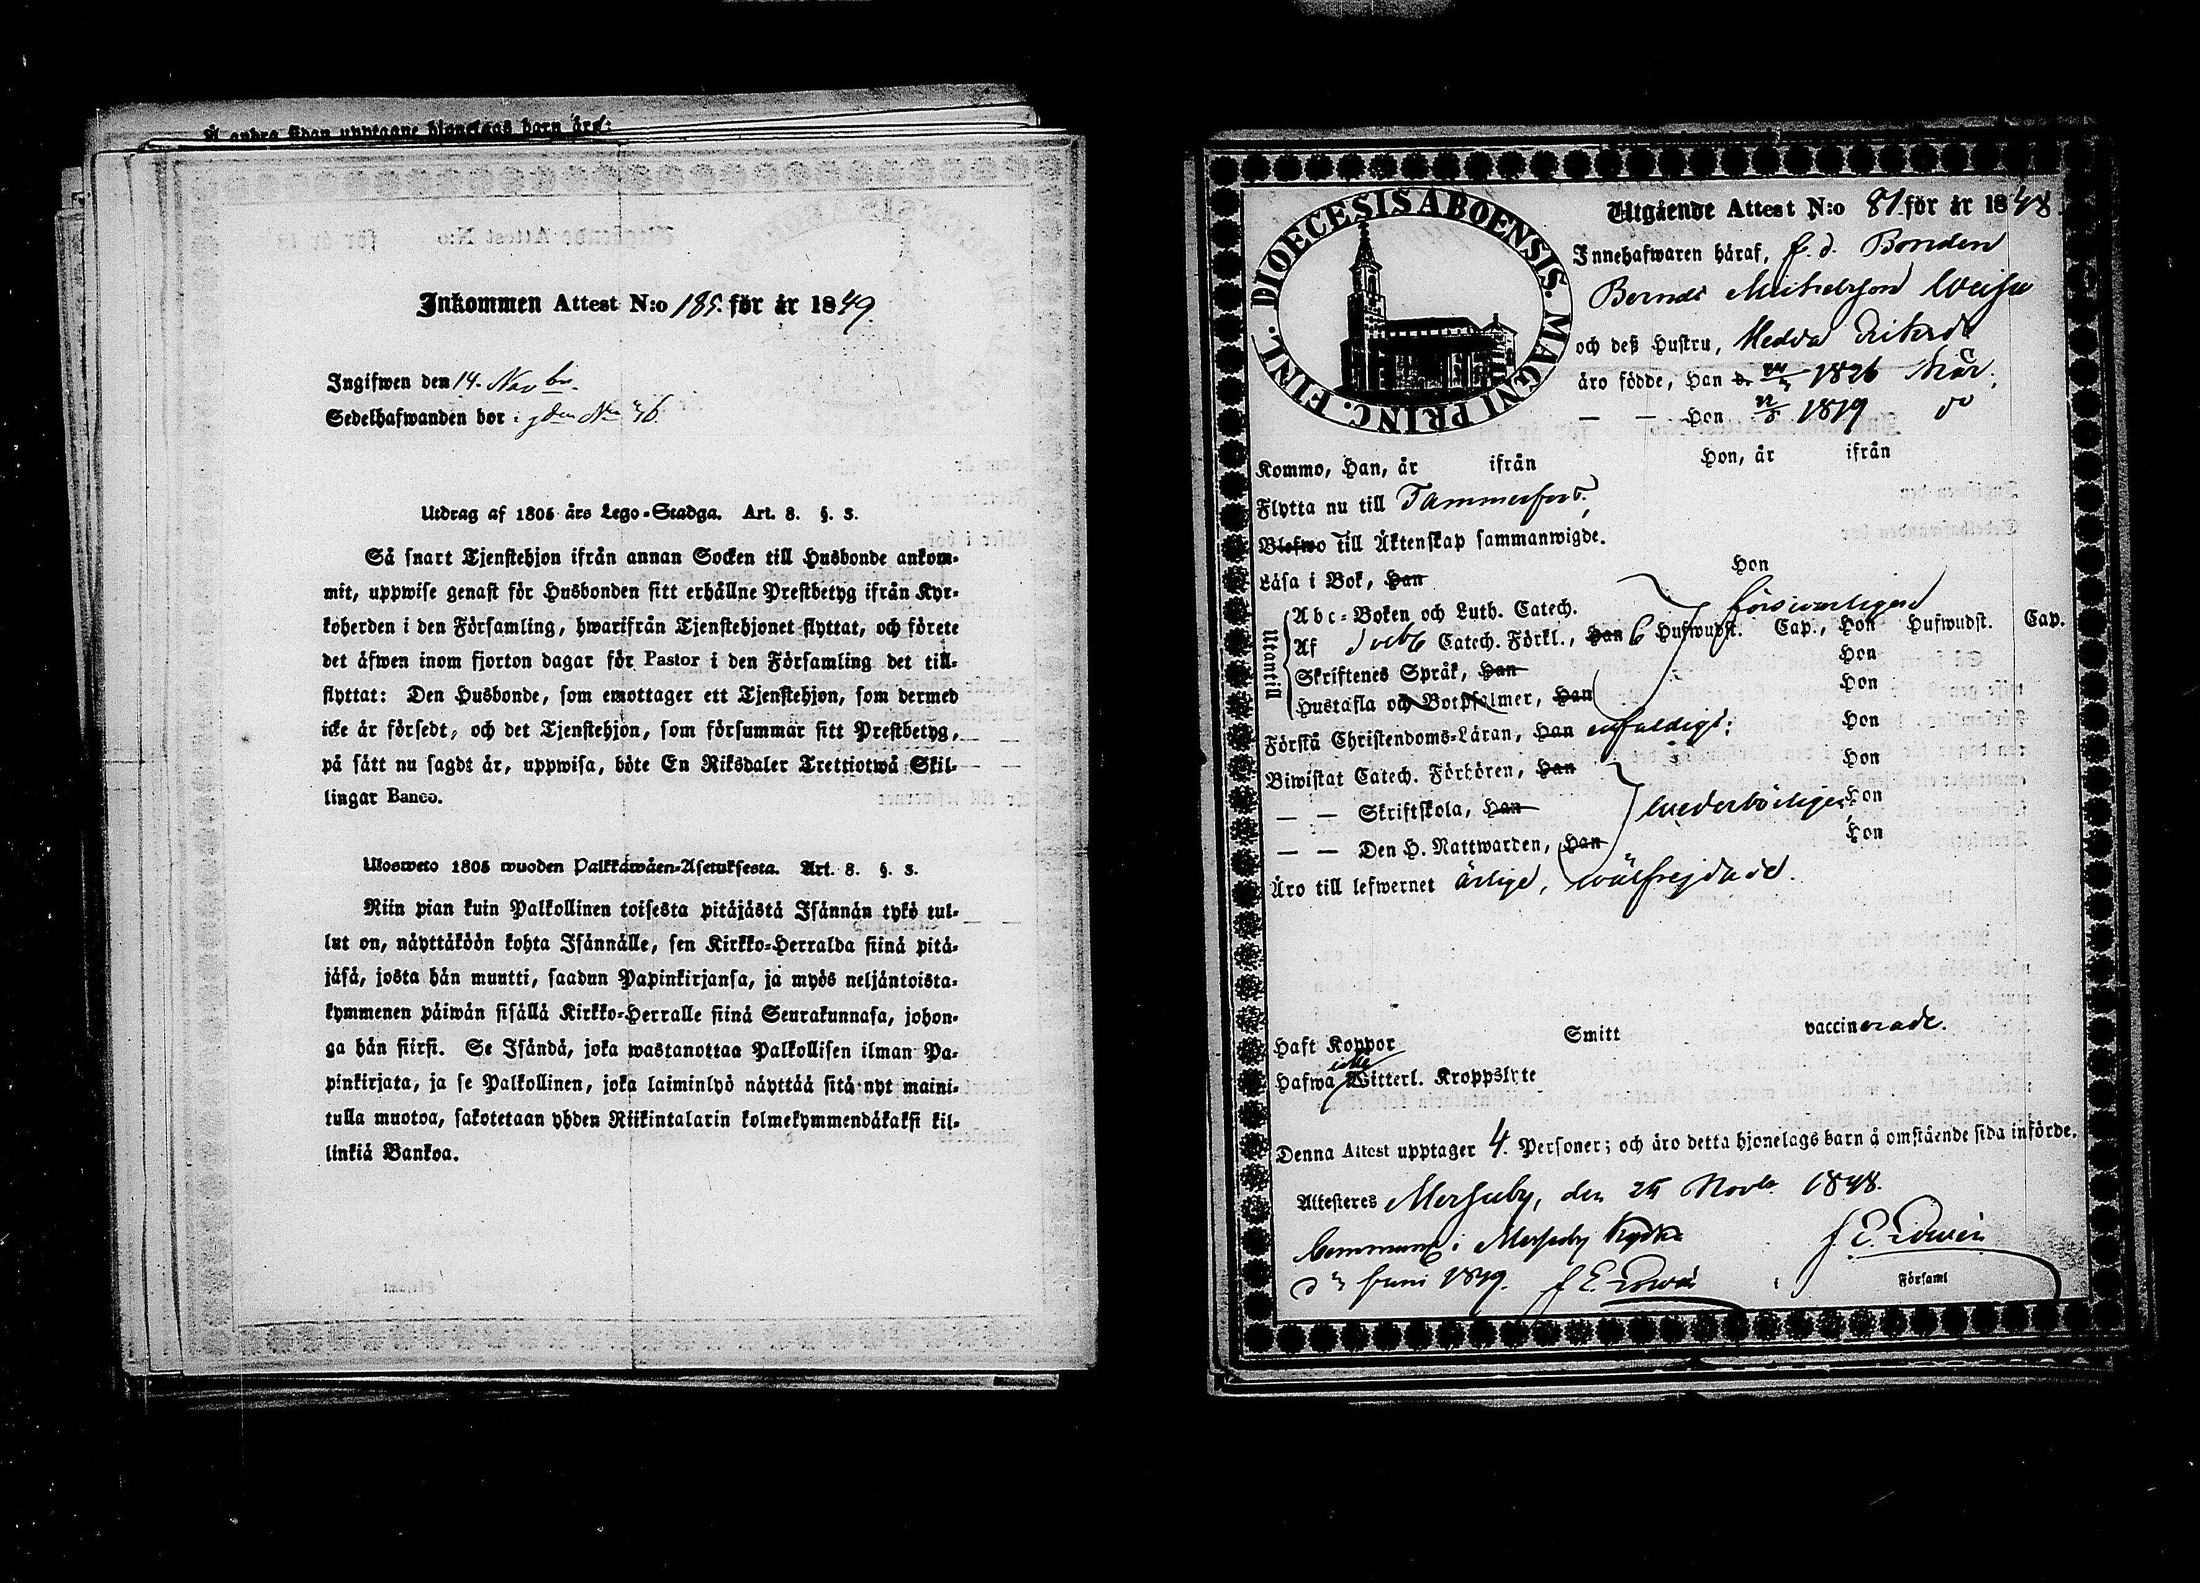 Å andra sidan upptagne hjonelags barn äro:
Inkommen Attest N:o 185. för år 1849.
Ingifwen den 14. Novbr.
Sedelhafwanden bor i gden No 46.
Utdrag af 1805 års Lego-Stadga. Art. 8. §. 3.
Så snart Tjenstehjon ifrån annan Socken till Husbonde ankom-
mit, uppwise genast för Husbonden sitt erhållne Prestbetyg ifrån Kyr-
koherden i den Församling, hwarifrån Tjenstehjonet flyttat, och förete
det äfwen inom fjorton dagar för Pastor i den Församling det till-
flyttat: Den Husbonde, som emottager ett Tjenstehjon, som dermed
icke är försedt, och det Tjenstehjon, som försummar sitt Prestbetyg,
på sätt nu sagdt är, uppwisa, böte En Riksdaler Trettiotwå Skil-
lingar Banco.
Ulosweto 1805 wuoden Palkkawäen-Asetuksesta. Art. 8. §. 3.
Niin pian kuin Palkollinen toisesta pitäjästä Isännän tykö tul-
lut on, näyttäköön kohta Isännälle, sen Kirkko-Herralda siinä pitä-
jäsä, josta hän muutti, saadun Papinkirjansa, ja myös neljäntoista-
kymmenen päiwän sisällä Kirkko-Herralle siinä Seurakunnasa, johon-
ga hän siirsi. Se Isändä, joka wastanottaa Palkollisen ilman Pa-
pinkirjata, ja se Palkollinen, joka laiminlyö näyttää sitä nyt maini-
tulla muotoa, sakotetaan yhden Riikintalarin kolmekymmendäkaksi kil-
linkiä Bankoa.
DIOECESIS ABOENSIS. MAGNI PRINC. FINL.
Utgående Attest N:o 81. för år 1848.
Innehafwaren häraf, f. d. Bonden
Bernds Michelsson
och deß Hustru, Hedda
äro födde, Han d. 1826
— — Hon 1819 do
Kommo, Han, år ifrån Hon, år ifrån
Flytta nu till Tammerfors,
Blefwo till Äktenskap sammanwigde.
Läsa i Bok, Han Hon
försvarligen
Utantill
Abc-Boken och Luth. Catech.
Af Catech. Förkl., Han 6 Hufwudst. Cap., Hon Hufwudst. Cap.
Skriftenes Språk, Han Hon
Hustafla och Botpsalmer, Han Hon
Förstå Christendoms-Läran, Han enfaldigt; Hon
Biwistat Catech. Förhören, Han Hon
— — Skriftskola, Han wederbörligen Hon
— — Den H. Nattwarden, Han Hon
Äro till lefwernet ärlige, wälfrejdade.
Haft Koppor Smitt vaccinerade.
icke
Hafwa Witterl. Kroppslyte
Denna Attest upptager 4. Personer; och äro detta hjonelags barn å omstående sida införde.
Attesteres Mersuby, den 25 Novbr 1848.
i
Juni 1849.
Församl